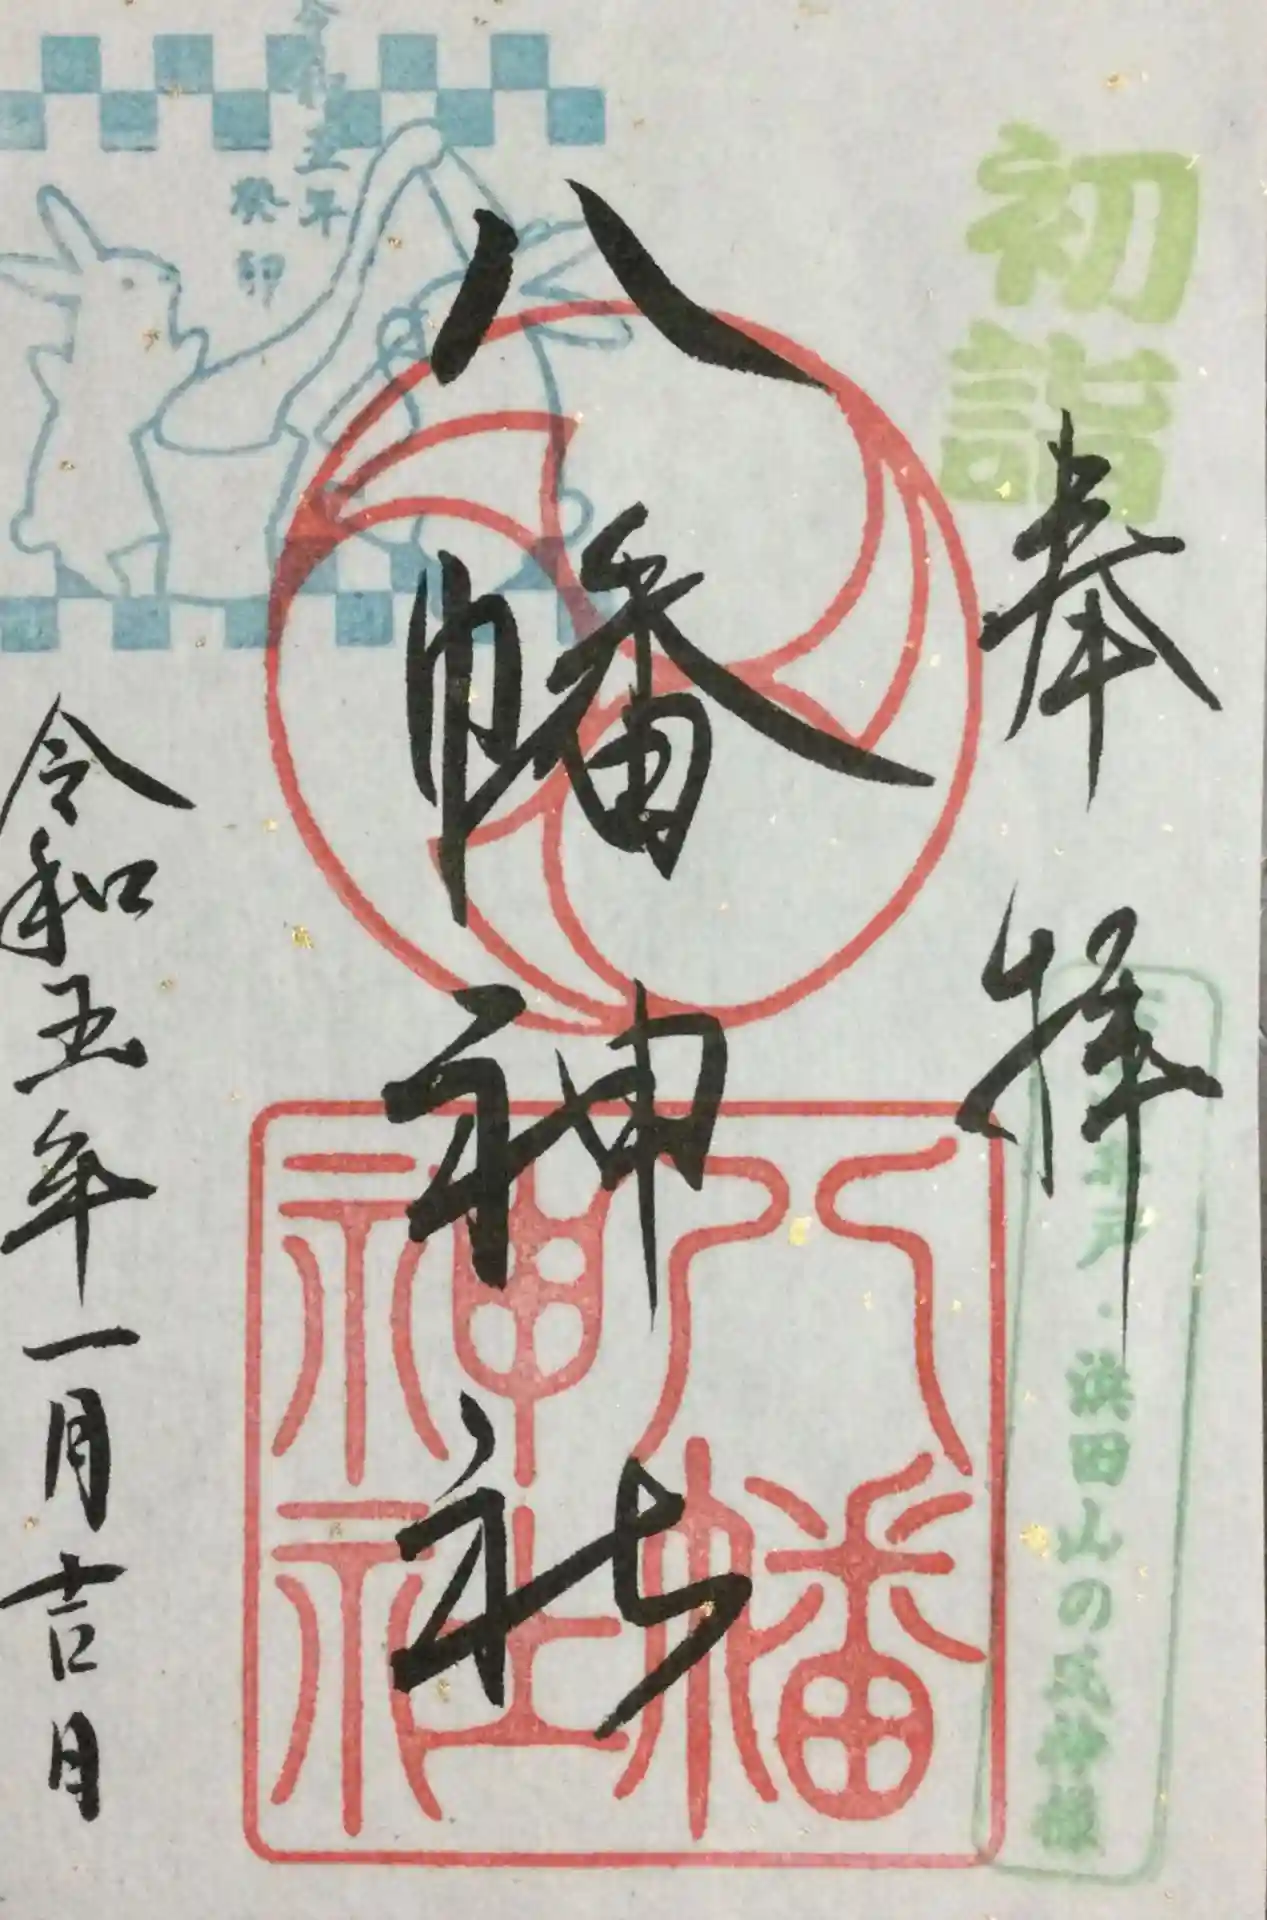 初詣
奉拝
戸・浜田山の氏神様
八幡神社
八幡神社
令和五年
癸卯
令和五年一月吉日